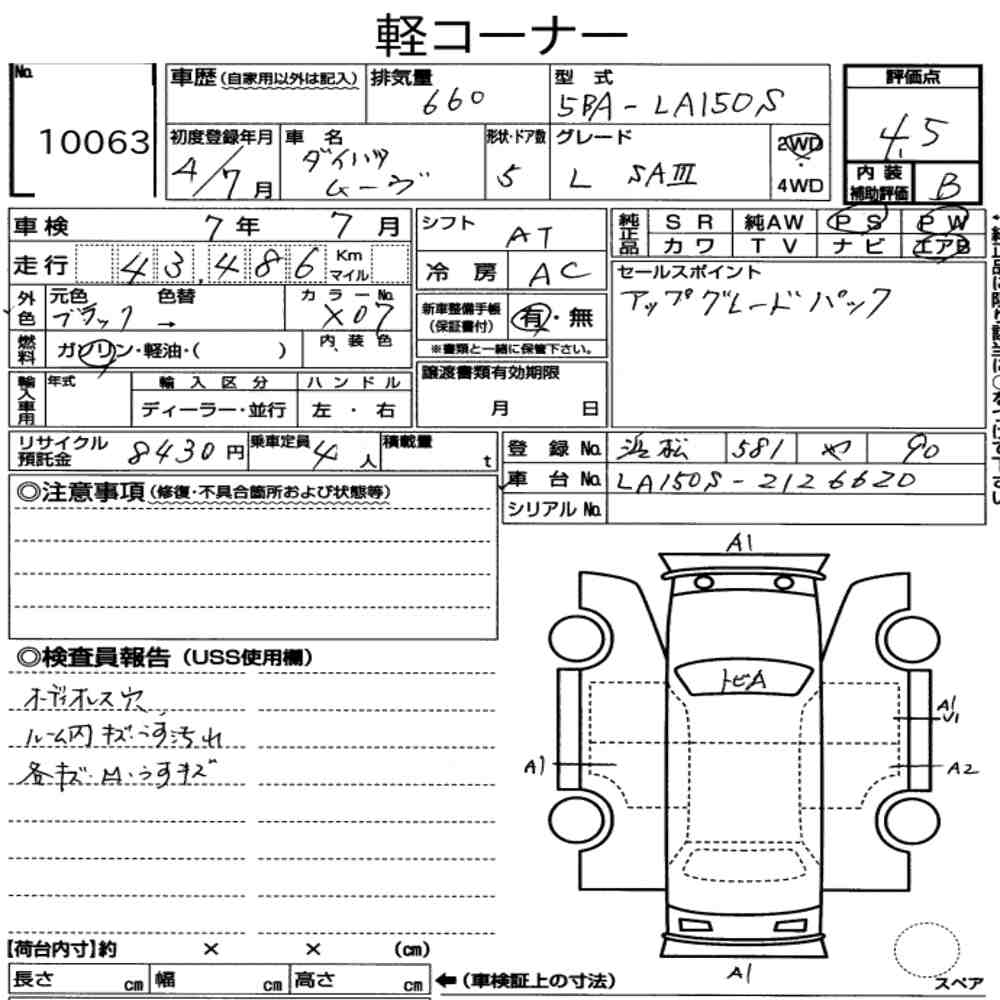 軽コーナー
No. 10063
車歴(自家用以外は記入) 排気量 660 型式 5BA-LA150S 評価点 4.5
初度登録年月 4/7月 車名 ダイハツ ムーヴ 形状・ドア数 5 グレード L SAⅢ 2WD・4WD 内装補助評価 B
車検 7年 7月 シフト AT 純正品 SR 純AW PS PW
走行 43,486 Km マイル 冷房 AC カワ TV ナビ エアB
外色 元色 ブラック → 色替 カラーNo. X07 新車整備手帳(保証書付) 有・無 セールスポイント
アップグレードパック
燃料 ガソリン・軽油・( ) 内装色 ※書類と一緒に保管下さい。
輸入車用 年式 輸入区分 ハンドル 譲渡書類有効期限
ディーラー・並行 左・右 月 日
リサイクル預託金 8430円 乗車定員 4人 積載量 t 登録No. 浜松 581 や 90
車台No. LA150S-2126620
シリアルNo.
◎注意事項(修復・不具合箇所および状態等)
◎検査員報告(USS使用欄)
オーディオレス穴
ルーム内キズ・うす汚れ
各キズ・M・うすキズ
A1
トビA
A1
U1
A1
A2
A1
【荷台内寸】約 × × (cm)
長さ cm 幅 cm 高さ cm ←(車検証上の寸法)
スペア